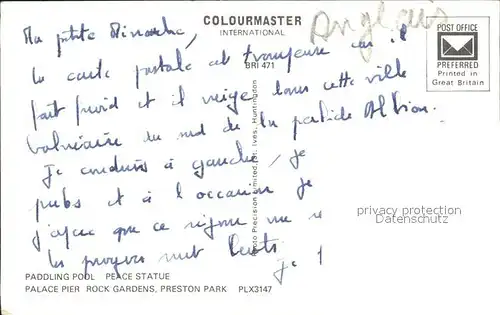 COLOURMASTER
INTERNATIONAL
Anglais
POST OFFICE
PREFERRED
Printed in
Great Britain
BRI 471
Ma petite
la carte postale est trompeuse car il
fait froid et il neige dans cette ville
balnéaire du sud de la perfide Albion.
Je conduis à gauche, je
pubs et à l'occasion je
que ce
les progrès sont lents
Photo Precision Limited, St. Ives, Huntingdon
privacy protection
Datenschutz
PADDLING POOL PEACE STATUE
PALACE PIER ROCK GARDENS, PRESTON PARK PLX3147